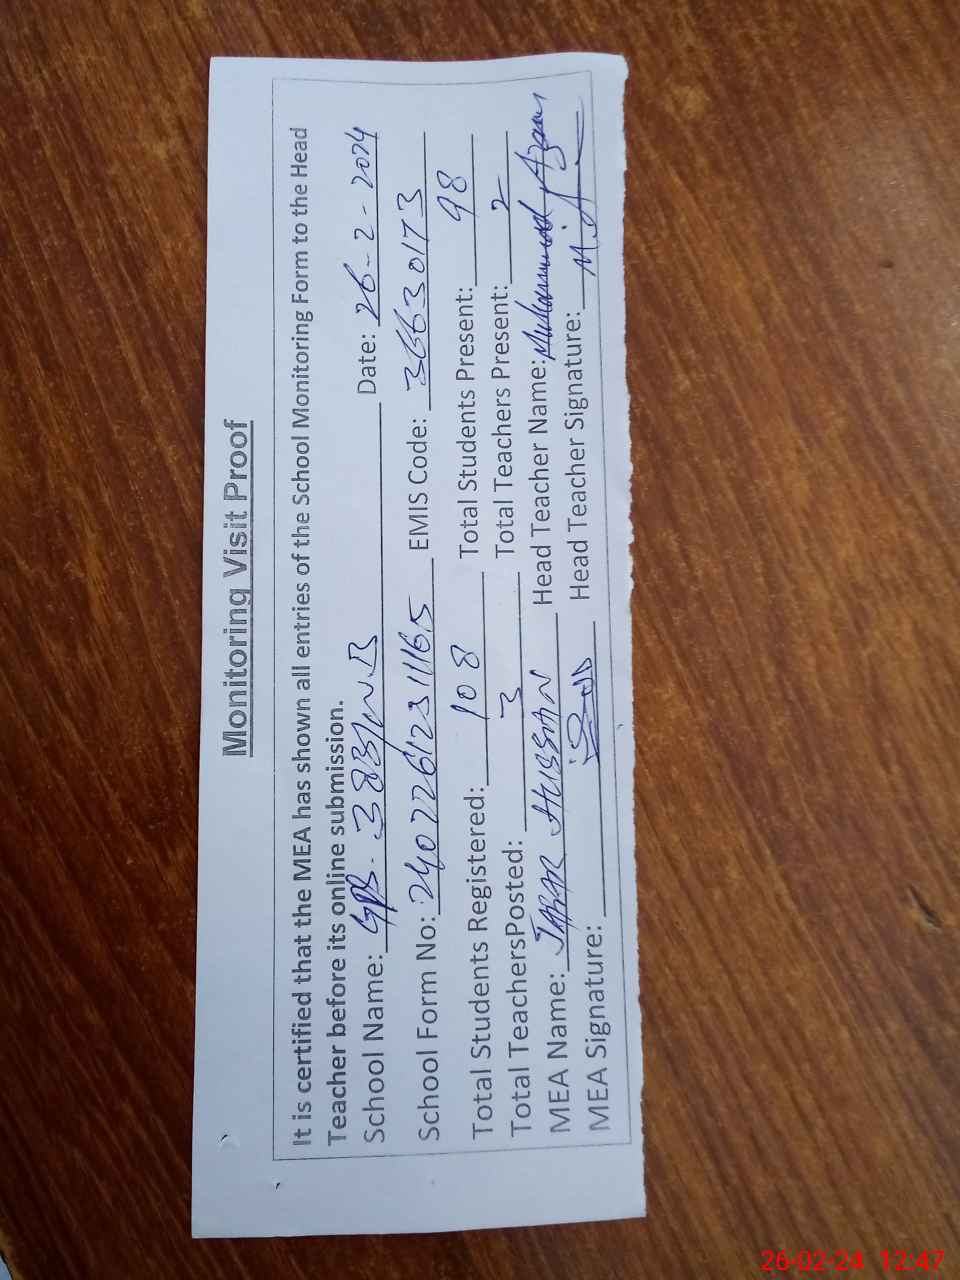 Monitoring Visit Proof
It is certified that the MEA has shown all entries of the School Monitoring Form to the Head
Teacher before its online submission.
School Name: GPS. 383/W.B Date: 26-2-2024
School Form No: 240226123111615 EMIS Code: 36630173
Total Students Registered: 108 Total Students Present: 98
Total TeachersPosted: 3 Total Teachers Present: 2
MEA Name: JAFAR HUSSAIN Head Teacher Name: Muhammad Azam
MEA Signature: Head Teacher Signature: M.A
26-02-24 12:47